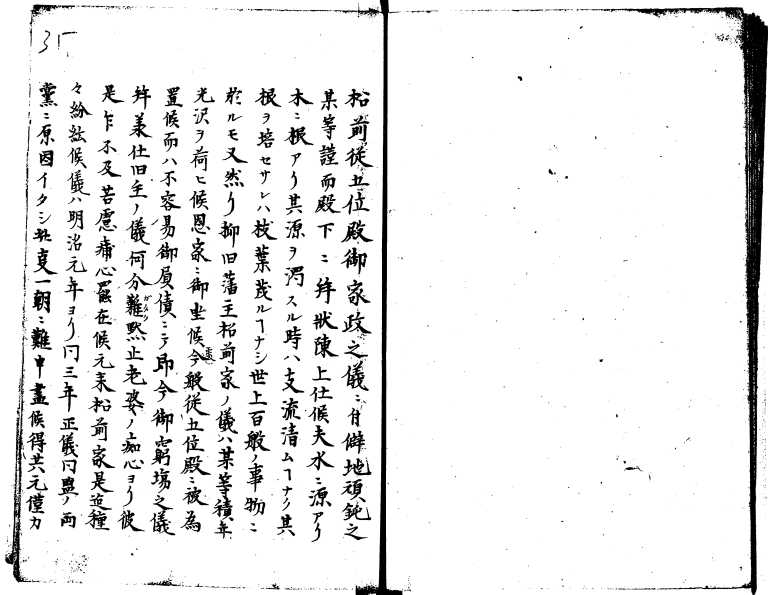 松前従五位殿御家政之儀ニ付僻地頑鈍之
某等謹而殿下ニ拜狀陳上仕候夫水ニ源アリ
木ニ根アリ其源ヲ濁スル時ハ支流清ムヿナク其
根ヲ培セサレハ枝葉茂ルヿナシ世上百般ノ事物ニ
於ルモ又然り抑旧藩主松前家ノ儀ハ某等積年
光沢ヲ荷ヒ候恩家ニ御坐候今般従五位殿ニ被為
置候而ハ不容易御負債ニテ即今御窮場之儀
拜承仕旧主ノ儀何分難黙止老婆ノ痴心ヨリ彼
是乍不及苦慮痛心罷在候元来松前家是迄種
々紛紜候儀ハ明治元年ヨリ同三年正儀同盟ノ両
黨ニ原因イタシ
変一朝ニ難申盡候得共元僅カ
35